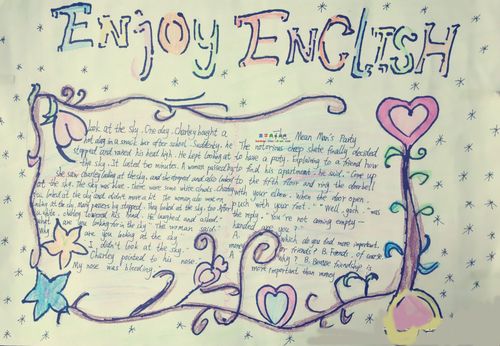 ENJOY ENGLISH
Look at the sky. One day. Charley bought a
hot dog in a snack bar after school. Suddenly, he
stopped and raised his head high. He kept looking at
the sky. It lasted ten minutes. A woman passed by
She saw charley looking at the sky, and she stopped and also looked
at the sky. The sky was blue. there were some white clouds. Charley
look at the sky. Many passers by stopped. They looked at the sky, too. After
a while, charley lowered his head. He laughed and asked."
What are you looking for in the sky?" The woman said."
Why are you looking at the sky
I didn't look at the sky.
Charley pointed to his nose
My nose was bleeding.
Mean Man's Party
The notorious cheap skate finally decided
to have a party. Explaining to a friend how
to find his apartment, he said. "Come up
to the fifth floor and ring the doorbell
with your elbow. When the door open,
push with your foot." "Well, gosh," was
the reply, "You're not coming empty-
handed are you?"
A: which do you find more important,
money or friends? B: Friends, of course
A: why? B: Because friendship is
more important than money